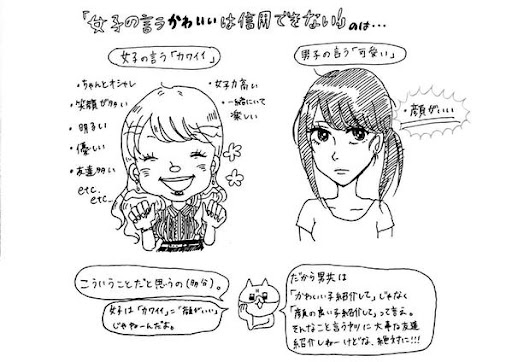 「女子の言うかわいいは信用できない」のは…
女子の言う「カワイイ」
・ちゃんとオシャレ
・笑顔が多い
・明るい
・優しい
・友達多い
etc.
etc..
・女子力高い
・一緒にいて
楽しい
男子の言う「可愛い」
・顔がいい
こういうことだと思うの(多分)。
女子は「カワイイ」=「顔がいい」
じゃねーんだよ。
だから男共は
「かわいい子紹介して」じゃなく
「顔の良い子紹介して」って言え。
そんなこと言うヤツに大事な友達
紹介しねーけどな、絶対に!!!